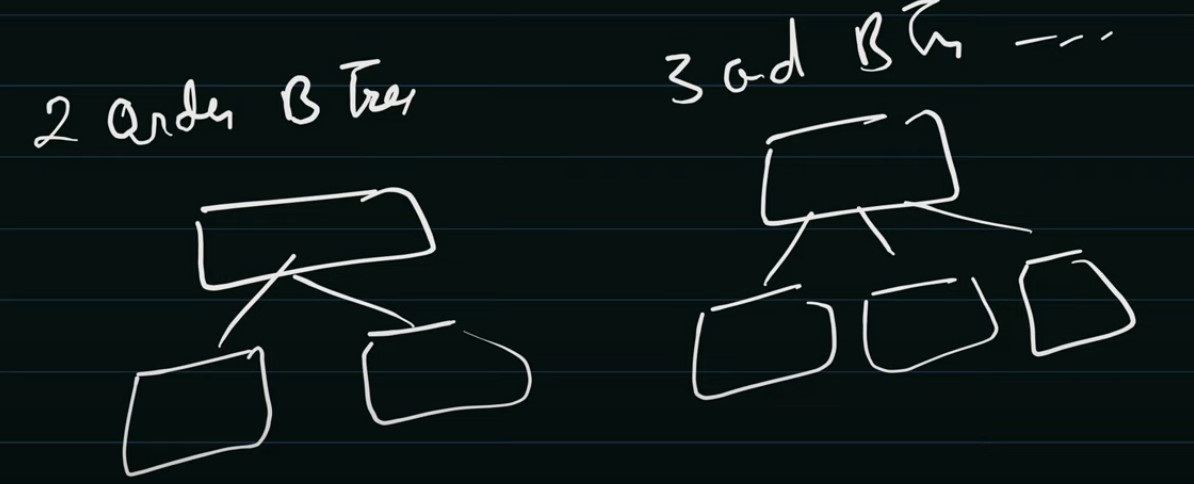 2 Order B Tree
3 ord B Tr ----